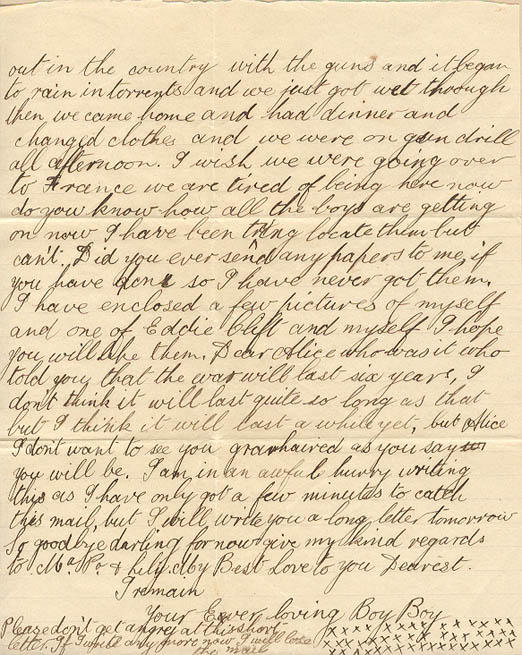 out in the country with the guns and it began
to rain in torrents and we just got wet through
then we came home and had dinner and
changed clothes and we were on gun drill
all afternoon. I wish we were going over
to France we are tired of being here now
do you know how all the boys are getting
on now I have been trying locate them but
can't. Did you ever send any papers to me, if
you have done so I have never got them.
I have enclosed a few pictures of myself
and one of Eddie Clift and myself I hope
you will like them. Dear Alice who was it who
told you that the war will last six years, I
don't think it will last quite so long as that
but I think it will last a while yet, but Alice
I don't want to see you grayhaired as you say
you will be. I am in an awful hurry writing
this as I have only got a few minutes to catch
this mail, but I will write you a long letter tomorrow
So goodbye darling for now give my kind regards
to Ma. Pa. & Lily. My Best Love to you Dearest.
I remain
Your Ever loving Boy Roy
Please don't get angry at this short
letter. If I write any more now I will lose
the mail
xxxxxxxxxxxx
xxxxxxxxxxxx
xxxxxxxxxxxx